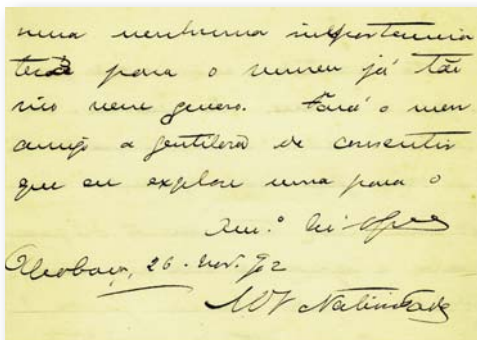 uma nenhuma importancia
terá para o museu já tão
rico nesse genero. Fará o meu
amigo a gentileza de consentir
que eu explore uma para o
Am.º
Alcobaça, 26 - Nov. 912
M V Natividade